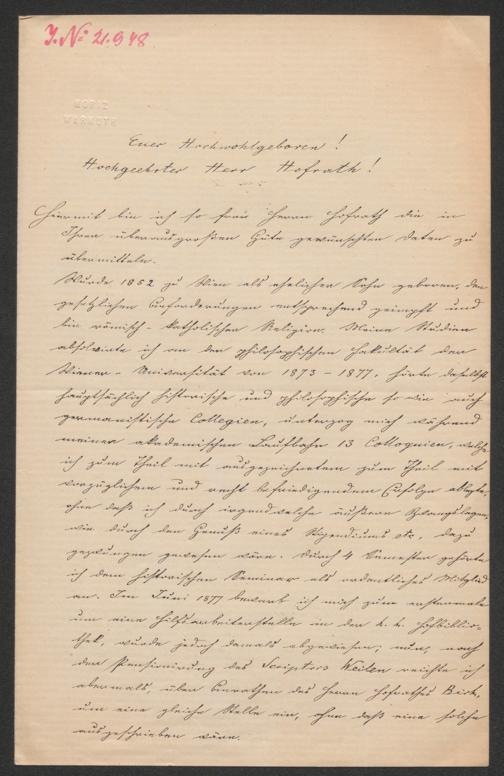 J. № 21.948
MORIZ
WARMUTH
Euer Hochwohlgeboren!
Hochgeehrter Herr Hofrath!
Hiermit bin ich so frei Herrn Hofrath die in
Ihrer überausgroßen Güte gewünschten Daten zu
übermitteln.
Wurde 1852 zu Wien als ehelicher Sohn geboren, den
gesetzlichen Anforderungen entsprechend geimpft und
bin römisch-katholischer Religion. Meine Studien
absolvirte ich an der philosophischen Fakultät der
Wiener-Universität von 1873-1877, hörte daselbst
hauptsächlich historische und philosophische so wie auch
germanistische Collegien, unterzog mich während
meiner akademischen Laufbahn 13 Colloquien, welche
ich zum Theil mit ausgezeichnetem zum Theil mit
vorzüglichem und recht befriedigendem Erfolge ablegte,
ohne daß ich durch irgendwelche äußere Zwangslagen,
wie durch den Genuß eines Stipendiums etc., dazu
gezwungen gewesen wäre. Durch 4 Semester gehörte
ich dem historischen Seminar als ordentliches Mitglied
an. Im Juni 1877 bewarb ich mich zum erstenmale
um eine Hilfsarbeiterstelle in der k. k. Hofbiblio-
thek, wurde jedoch damals abgewiesen; nun, nach
der Pensionirung des Scriptors Weilen reichte ich
abermals, über Anrathen des Herrn Hofrathes Birk,
um eine gleiche Stelle ein, ohne daß eine solche
ausgeschrieben wäre.